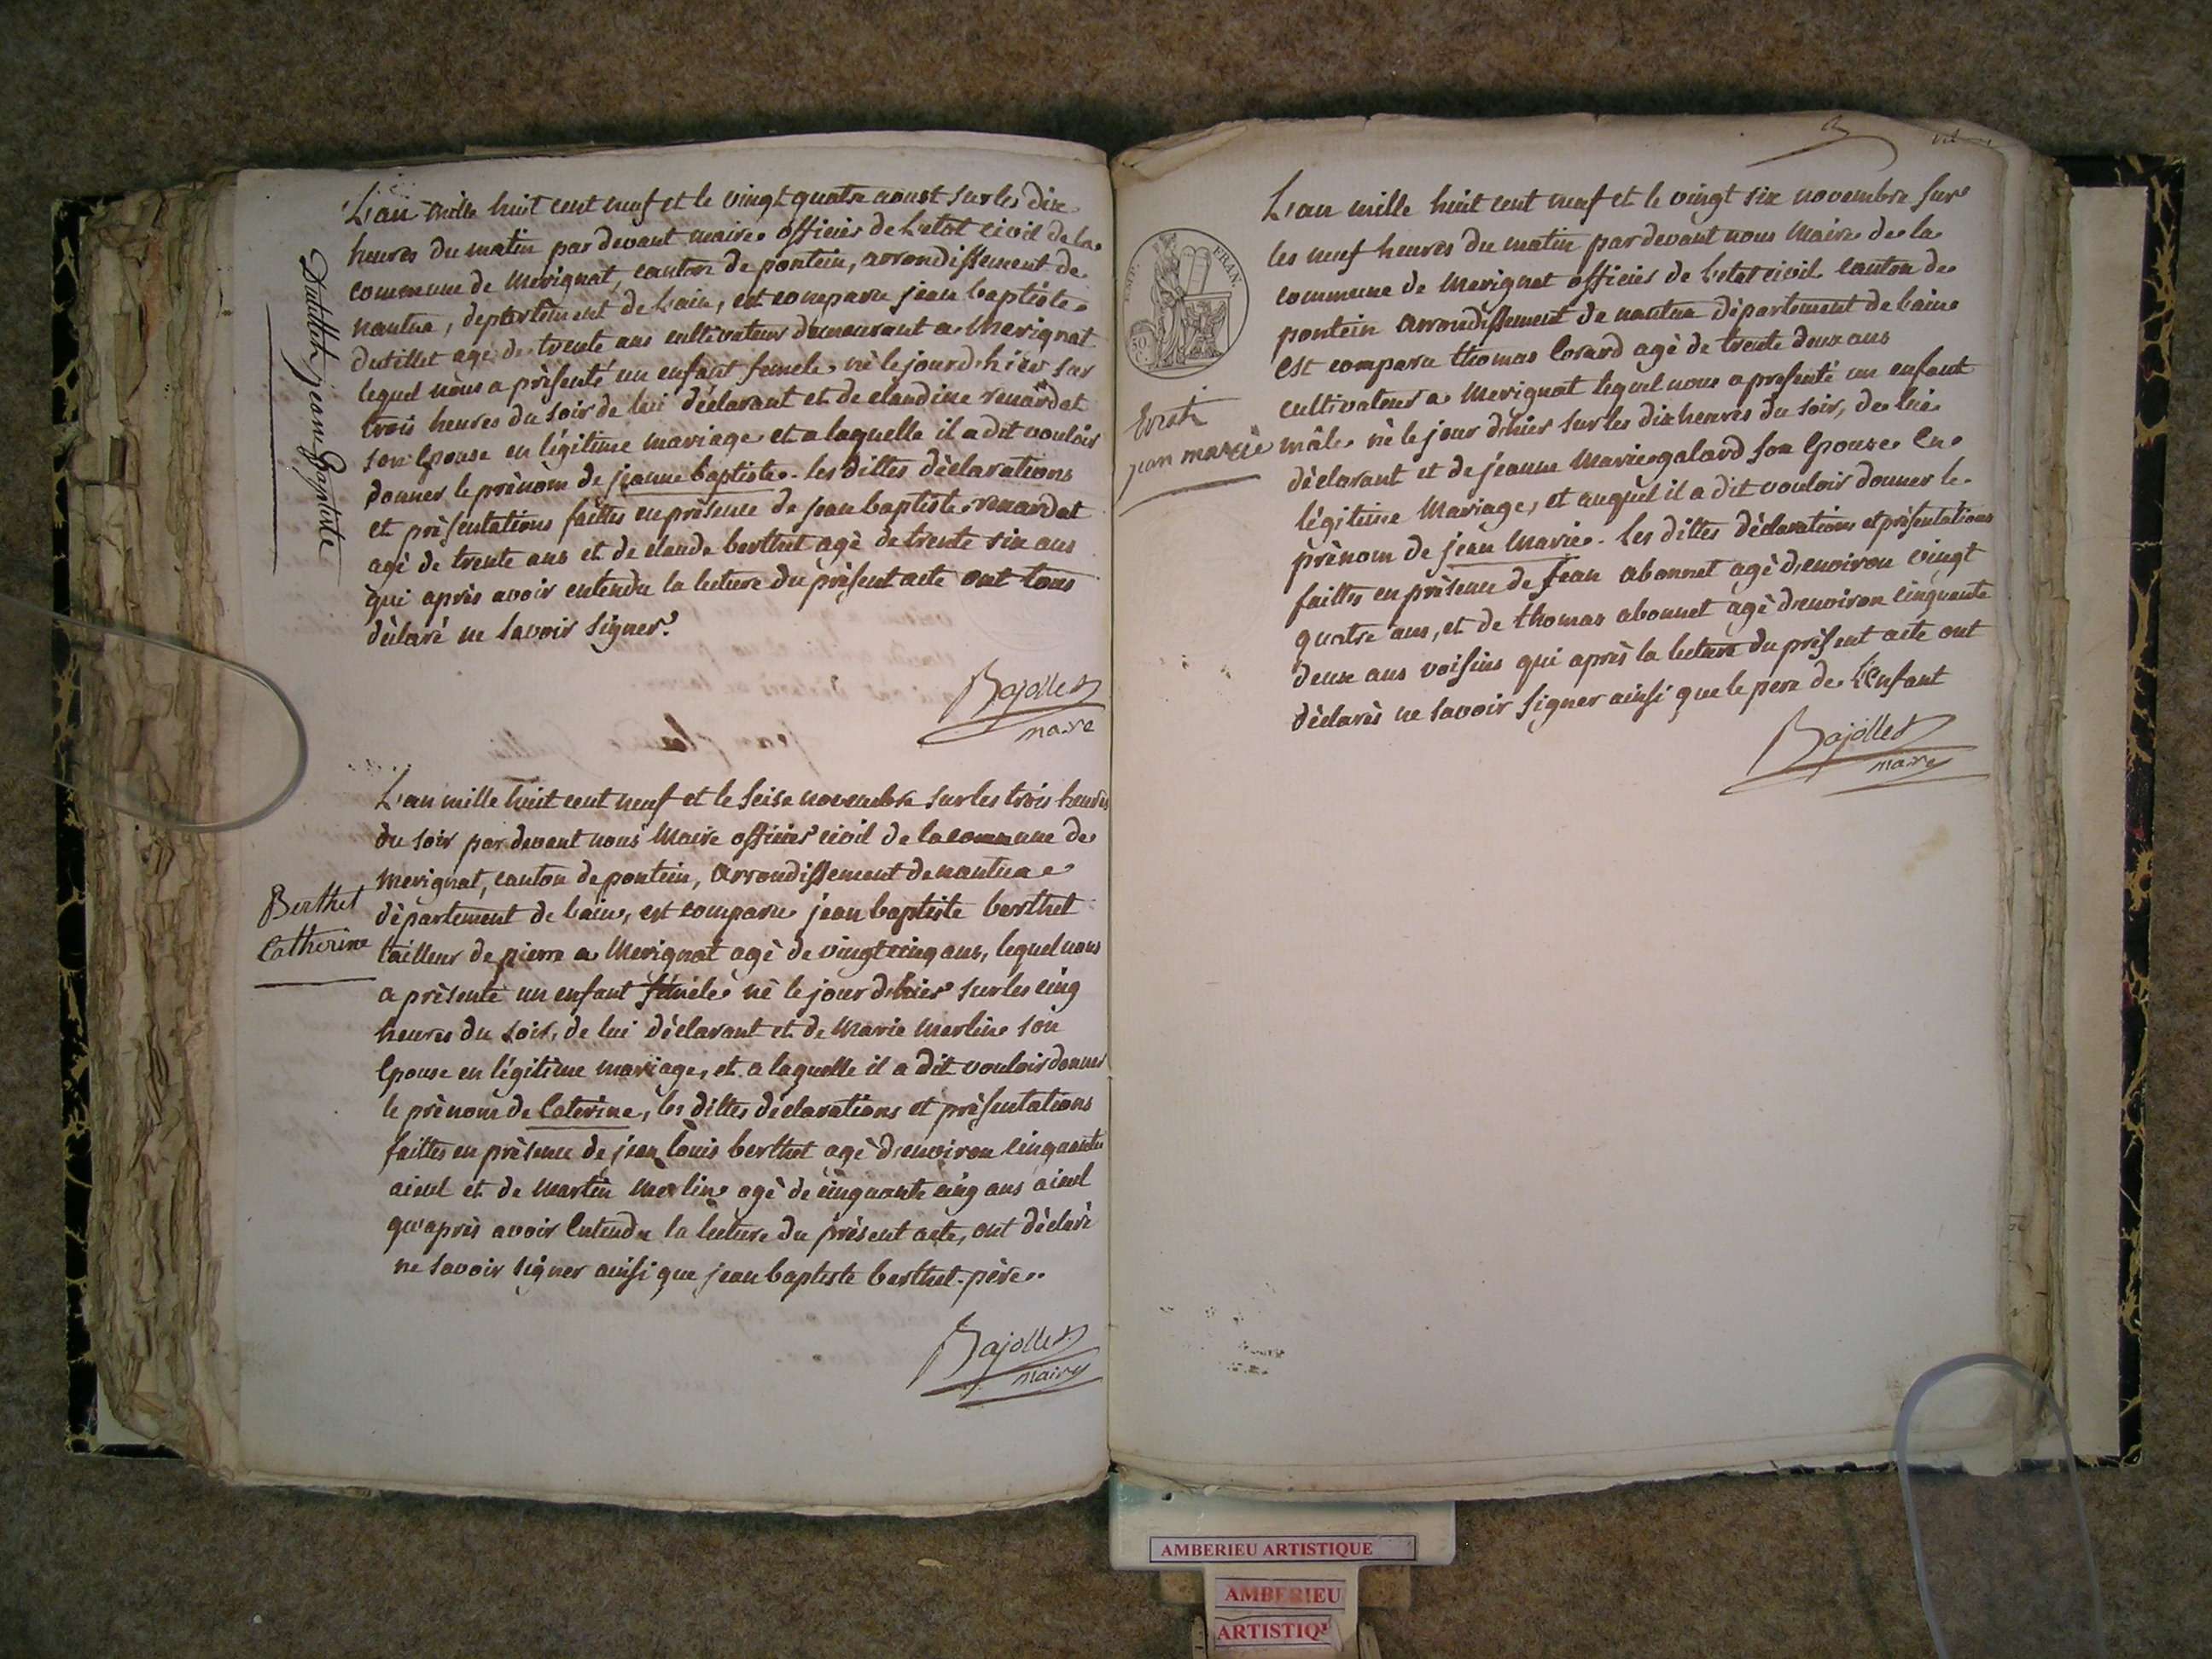 L'an mille huit cent neuf et le vingt quatre aoust sur les dix
heures du matin par devant maire officier de l'etat civil de la
commune de Merignat, canton de pontein, arrondissement de
nantua, departement de l'ain, est comparu jean baptiste
dutillet agé de trente ans cultivateur demeurant a Merignat
lequel nous a présenté un enfant femele né le jour d'hier sur
trois heures du soir de lui déclarant et de claudine renardat
son Epouse en légitime mariage et a laquelle il a dit vouloir
donner le prénom de jeanne baptiste. les dittes dèclarations
et présentations faittes en présence de jean baptiste renardat
agé de trente ans et de claude berthet agé de trente six ans
qui après avoir entendu la lecture du présent acte ont tous
dèclaré ne savoir signer.
jean Baptiste
Bajollet
maire
L'an mille huit cent neuf et le seise novembre sur les trois heures
du soir par devant nous Maire officier civil de la commune de
Merignat, canton de pontein, arrondissement de nantua
dèpartement de l'ain, est comparu jean baptiste berthet
tailleur de pierre a Merignat agé de vingt cinq ans, lequel nous
a présenté un enfant fémele né le jour d'hier sur les cinq
heures du soir, de lui dèclarant et de Marie Merlin son
Epouse en légitime mariage, et a laquelle il a dit vouloir donner
le prènom de Caterine, les dittes dèclarations et prèsentations
faittes en présence de jean louis berthet agé d'environ cinquante
aieul et de Martin Merlin agé de cinquante cinq ans aieul
qu'après avoir Entendu la lecture du présent acte, ont dèclaré
ne savoir signer ainsi que jean baptiste berthet père
Berthet
Catherine
Bajollet
maire
L'an mille huit cent neuf et le vingt six novembre sur
les neuf heures du matin par devant nous Maire de la
commune de Merignat officier de l'etat civil canton de
pontein arrondissement de nantua département de l'ain
est comparu thomas agé de trente deux ans
cultivateur a Merignat lequel nous a presenté un enfant
mâle né le jour d'hier sur les dix heures du soir, de lui
dèclarant et de jeanne Marie galard son Epouse En
légitime Mariage, et auquel il a dit vouloir donner le
prènom de jean Marie. les dittes dèclarations et présentations
faittes en présence de jean abonnet agé d'environ vingt
quatre ans, et de thomas abonnet agé d'environ cinquante
deux ans voisins qui après la lecture du présent acte ont
dèclarés ne savoir signer ainsi que le pere de L'Enfant
jean marie
FRAN.
Bajollet
maire
AMBERIEU ARTISTIQUE
AMBERIEU
ARTISTIQ